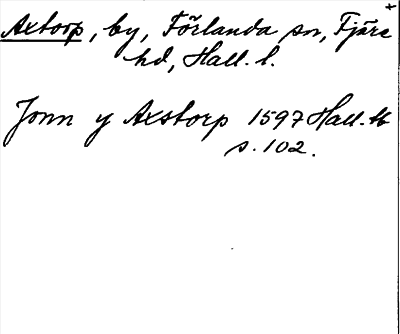 Axtorp, by, Förlanda sn, Fjäre
hd, Hall. l.
Jonn y Axstorp 1597 Hall. tb
s. 102.